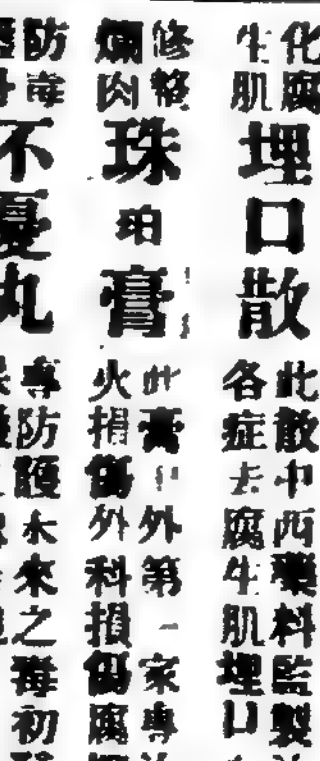 化腐
生肌
埋口散
此散中西藥料監製
各症去腐生肌埋口
修整
爛肉
珠珀膏
此膏外第一家專
火損傷外科損傷腐
防毒
不憂丸
專防護未來之毒初